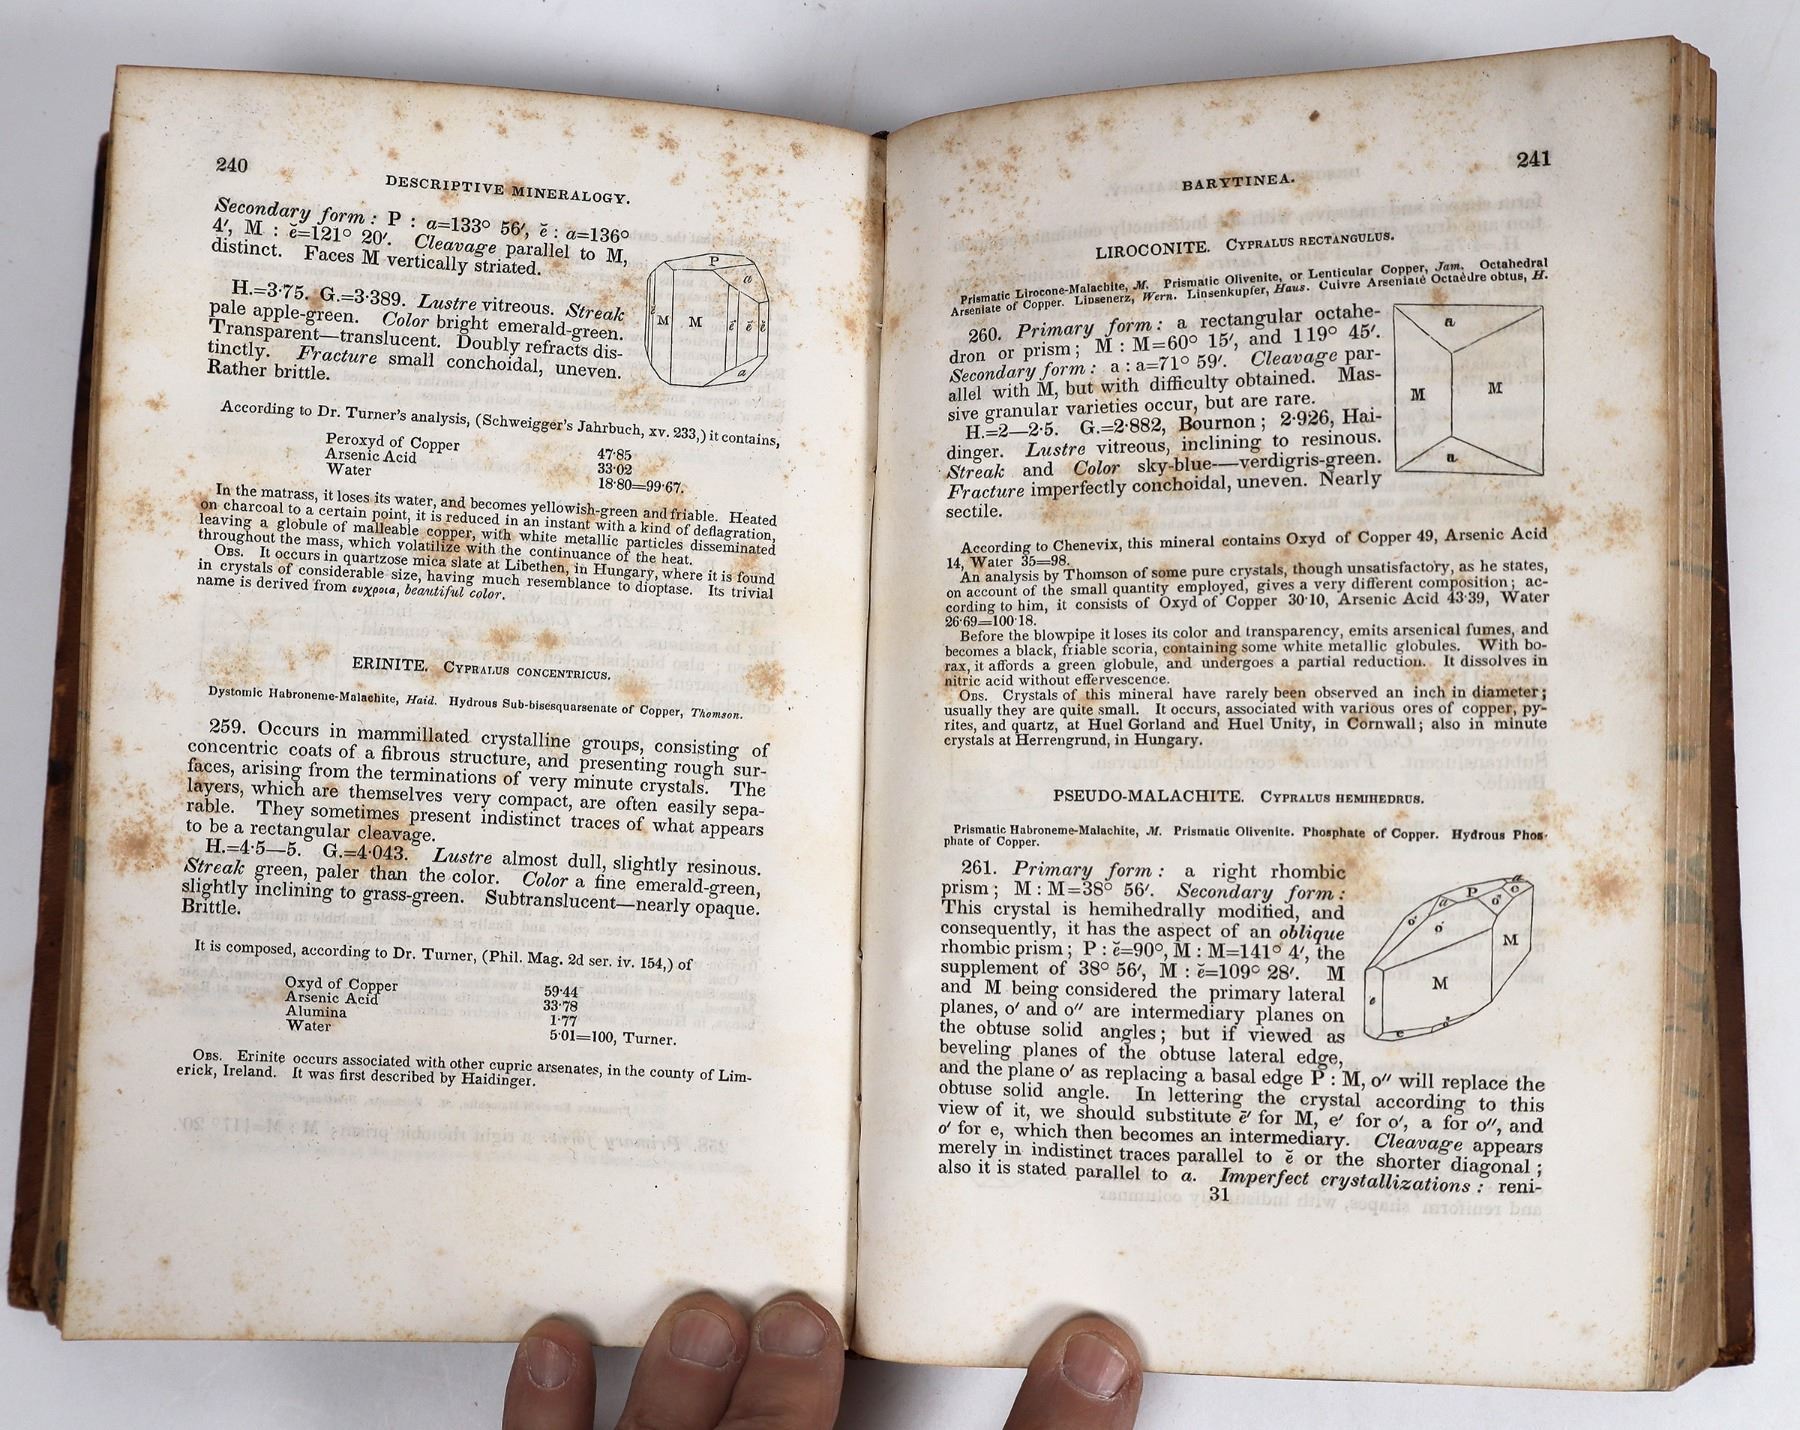 240
DESCRIPTIVE MINERALOGY.
Secondary form: P : a=133° 56′, ĕ : a=136°
4′, M : ĕ=121° 20′. Cleavage parallel to M,
distinct. Faces M vertically striated.
H.=3·75. G.=3·389. Lustre vitreous. Streak
pale apple-green. Color bright emerald-green.
Transparent—translucent. Doubly refracts dis-
tinctly. Fracture small conchoidal, uneven.
Rather brittle.
P
a
e
M
M
ĕ′
ĕ′
ĕ
a
According to Dr. Turner's analysis, (Schweigger's Jahrbuch, xv. 233,) it contains,
Peroxyd of Copper 47·85
Arsenic Acid 33·02
Water 18·80=99·67.
In the matrass, it loses its water, and becomes yellowish-green and friable. Heated
on charcoal to a certain point, it is reduced in an instant with a kind of deflagration,
leaving a globule of malleable copper, with white metallic particles disseminated
throughout the mass, which volatilize with the continuance of the heat.
OBS. It occurs in quartzose mica slate at Libethen, in Hungary, where it is found
in crystals of considerable size, having much resemblance to dioptase. Its trivial
name is derived from ευχροια, beautiful color.
ERINITE. CYPRALUS CONCENTRICUS.
Dystomic Habroneme-Malachite, Haid. Hydrous Sub-bisesquarsenate of Copper, Thomson.
259. Occurs in mammillated crystalline groups, consisting of
concentric coats of a fibrous structure, and presenting rough sur-
faces, arising from the terminations of very minute crystals. The
layers, which are themselves very compact, are often easily sepa-
rable. They sometimes present indistinct traces of what appears
to be a rectangular cleavage.
H.=4·5—5. G.=4·043. Lustre almost dull, slightly resinous.
Streak green, paler than the color. Color a fine emerald-green,
slightly inclining to grass-green. Subtranslucent—nearly opaque.
Brittle.
It is composed, according to Dr. Turner, (Phil. Mag. 2d ser. iv. 154,) of
Oxyd of Copper 59·44
Arsenic Acid 33·78
Alumina 1·77
Water 5·01=100, Turner.
OBS. Erinite occurs associated with other cupric arsenates, in the county of Lim-
erick, Ireland. It was first described by Haidinger.
241
BARYTINEA.
LIROCONITE. CYPRALUS RECTANGULUS.
Prismatic Lirocone-Malachite, M. Prismatic Olivenite, or Lenticular Copper, Jam. Octahedral
Arseniate of Copper. Linsenerz, Wern. Linsenkupfer, Haus. Cuivre Arseniaté Octaèdre obtus, H.
260. Primary form: a rectangular octahe-
dron or prism; M : M=60° 15′, and 119° 45′.
Secondary form: a : a=71° 59′. Cleavage par-
allel with M, but with difficulty obtained. Mas-
sive granular varieties occur, but are rare.
H.=2—2·5. G.=2·882, Bournon; 2·926, Hai-
dinger. Lustre vitreous, inclining to resinous.
Streak and Color sky-blue—verdigris-green.
Fracture imperfectly conchoidal, uneven. Nearly
sectile.
a
M
M
a
According to Chenevix, this mineral contains Oxyd of Copper 49, Arsenic Acid
14, Water 35=98.
An analysis by Thomson of some pure crystals, though unsatisfactory, as he states,
on account of the small quantity employed, gives a very different composition; ac-
cording to him, it consists of Oxyd of Copper 30·10, Arsenic Acid 43·39, Water
26·69=100·18.
Before the blowpipe it loses its color and transparency, emits arsenical fumes, and
becomes a black, friable scoria, containing some white metallic globules. With bo-
rax, it affords a green globule, and undergoes a partial reduction. It dissolves in
nitric acid without effervescence.
OBS. Crystals of this mineral have rarely been observed an inch in diameter;
usually they are quite small. It occurs, associated with various ores of copper, py-
rites, and quartz, at Huel Gorland and Huel Unity, in Cornwall; also in minute
crystals at Herrengrund, in Hungary.
PSEUDO-MALACHITE. CYPRALUS HEMIHEDRUS.
Prismatic Habroneme-Malachite, M. Prismatic Olivenite. Phosphate of Copper. Hydrous Phos-
phate of Copper.
261. Primary form: a right rhombic
prism; M : M=38° 56′. Secondary form:
This crystal is hemihedrally modified, and
consequently, it has the aspect of an oblique
rhombic prism; P : ĕ=90°, M : M=141° 4′, the
supplement of 38° 56′, M : ĕ=109° 28′. M
and M being considered the primary lateral
planes, o′ and o″ are intermediary planes on
the obtuse solid angles; but if viewed as
beveling planes of the obtuse lateral edge,
and the plane o′ as replacing a basal edge P : M, o″ will replace the
obtuse solid angle. In lettering the crystal according to this
view of it, we should substitute ĕ′ for M, e′ for o′, a for o″, and
o′ for e, which then becomes an intermediary. Cleavage appears
merely in indistinct traces parallel to ĕ or the shorter diagonal;
also it is stated parallel to a. Imperfect crystallizations: reni-
a
P
o
a
o′
o′
o′
M
M
e
e
o′
31